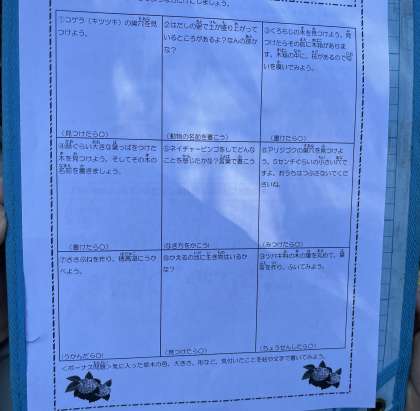 しましょう。
①コゲラ（キツツキ）の巣穴を見
つけよう。
（見つけたら○）
②はだしの
土が盛り上がって
いるところがあるよ？なんの
な？
（動物の名前を書こう）
③くろもじの木を見つけよう。見
つけたらその前に木箱がありま
す。木箱の中に、紙があるので
いを嗅いでみよう。
（書けたら○）
ぐらい大きな葉っぱをつけた
木を見つけよう。そしてその木の
名前を書きましょう。
（書けたら○）
⑤ネイチャービンゴをしてどんな
ことを感じたかな？言葉で書こう
（なき方をかこう）
⑥アリジゴクの巣穴を見つけよ
う。5センチぐらいの小さい穴で
すよ。おうちはつぶさないでくだ
さいね。
（みつけたら○）
⑦ささぶねを作り、
にうか
べよう。
（うかんだら○）
⑧かえるの池に生き物はいるか
な？
（見つけたら○）
⑨ツバキ科の木の葉を丸めて、葉
笛を作り、ふいてみよう。
（ちょうせんしたら○）
＜ボーナス問題＞気に入った草木の色、大きさ、形など、気付いたことを絵や文字で書いてみよう。